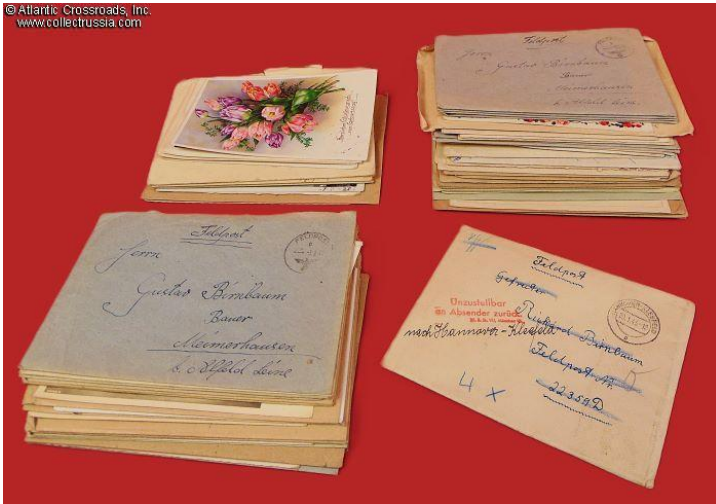 © Atlantic Crossroads, Inc.
www.collectrussia.com
Feldpost
Herrn
Gustav Birnbaum
Bauer
Meimerhausen
b. Alfeld Leine
Feldpost
Herrn
Gustav Birnbaum
Bauer
Meimerhausen
b. Alfeld Leine
Feldpost
Gefreiter
Unzustellbar
an Absender zurück
Richard Birnbaum
nach Hannover-Kleefeld
Feldpost Nr.
22359D
4 x